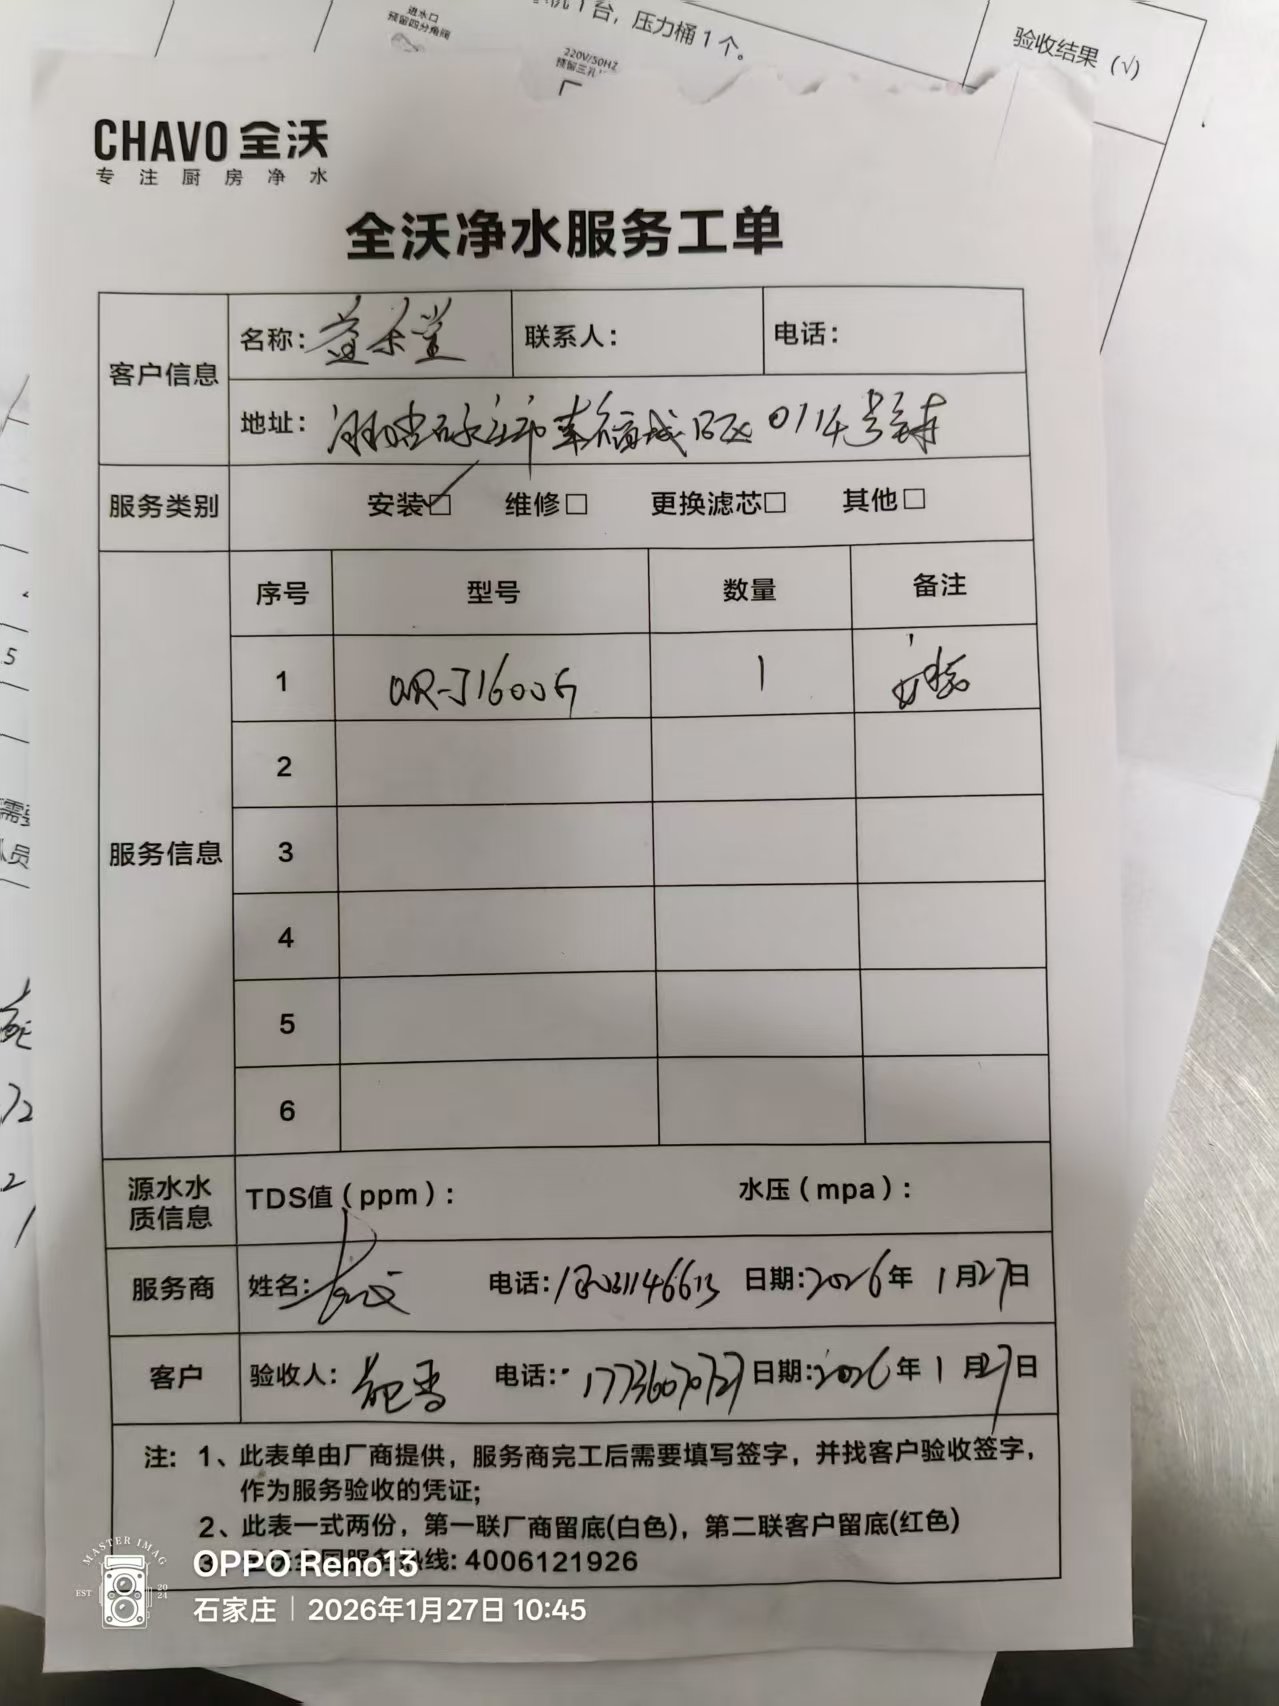 机1台，压力桶1个。
验收结果（√）
进水口
预留四分角阀
220V/50HZ
预留三孔
CHAVO全沃
专注厨房净水
全沃净水服务工单
客户信息
名称：益禾堂
联系人：
电话：
地址：0114号
服务类别
安装☑ 维修□ 更换滤芯□ 其他□
服务信息
序号 型号 数量 备注
1 J1600G 1
2
3
4
5
6
源水水质信息
TDS值（ppm）：
水压（mpa）：
服务商
姓名：
电话：
日期：2026年1月27日
客户
验收人：
电话：
日期：2026年1月27日
注：1、此表单由厂商提供，服务商完工后需要填写签字，并找客户验收签字，
作为服务验收的凭证；
2、此表一式两份，第一联厂商留底(白色)，第二联客户留底(红色)
热线：4006121926
MASTER IMAG
EST 2024
OPPO Reno13
石家庄｜2026年1月27日 10:45